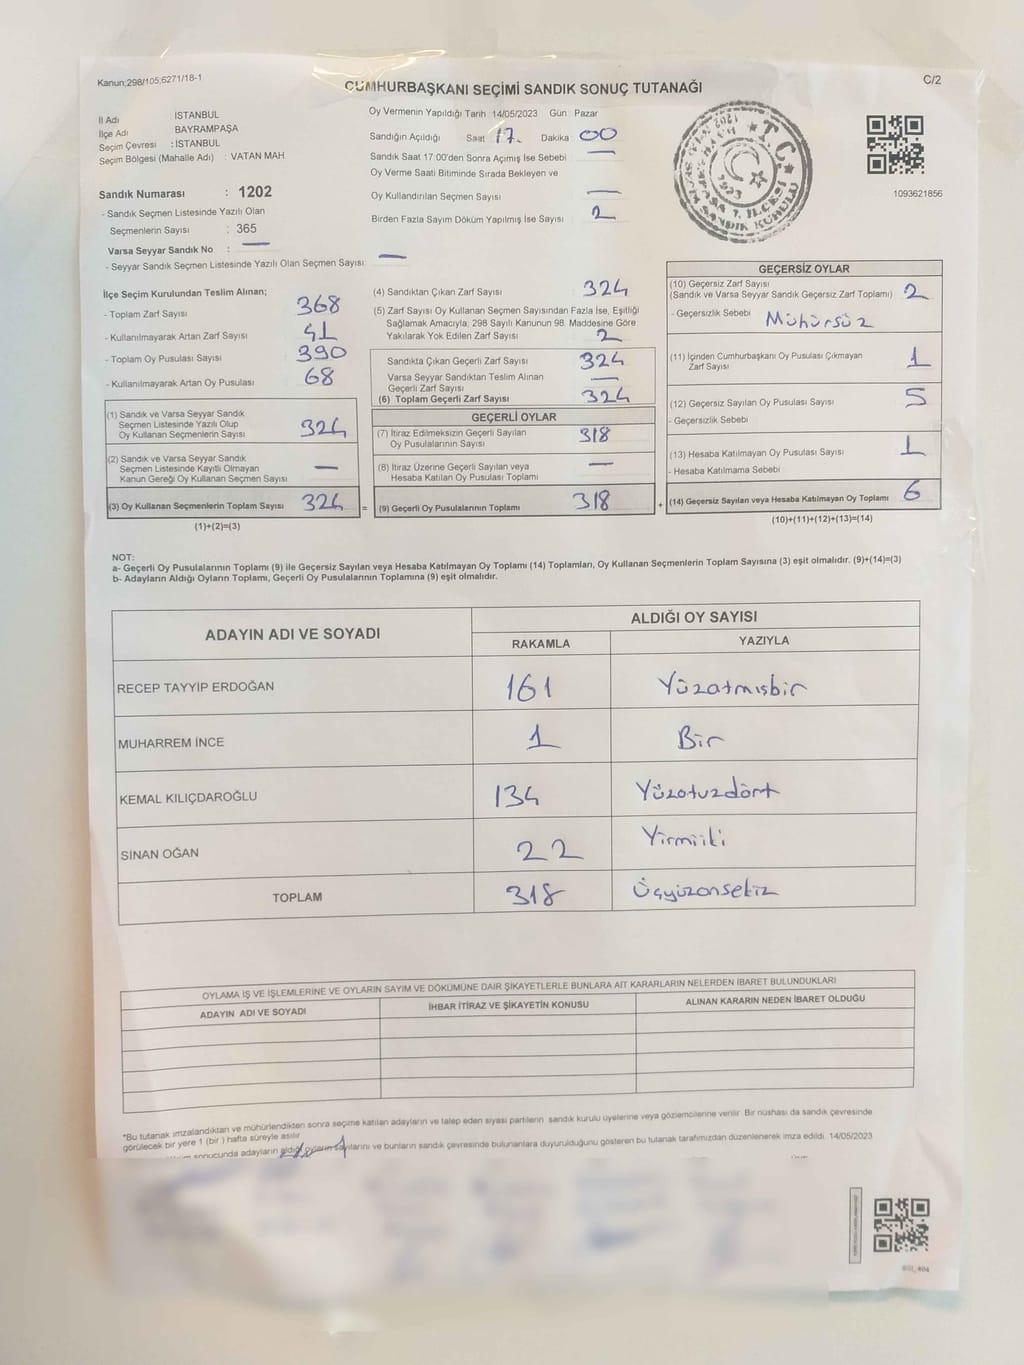 Kanun;298/105;6271/18-1
CUMHURBAŞKANI SEÇİMİ SANDIK SONUÇ TUTANAĞI
C/2
İl Adı İSTANBUL
İlçe Adı BAYRAMPAŞA
Seçim Çevresi : İSTANBUL
Seçim Bölgesi (Mahalle Adı) : VATAN MAH
Sandık Numarası : 1202
- Sandık Seçmen Listesinde Yazılı Olan
Seçmenlerin Sayısı : 365
Varsa Seyyar Sandık No : —
- Seyyar Sandık Seçmen Listesinde Yazılı Olan Seçmen Sayısı: —
Oy Vermenin Yapıldığı Tarih : 14/05/2023 Gün : Pazar
Sandığın Açıldığı Saat 17. Dakika 00
Sandık Saat 17.00'den Sonra Açımış İse Sebebi —
Oy Verme Saati Bitiminde Sırada Bekleyen ve
Oy Kullandırılan Seçmen Sayısı —
Birden Fazla Sayım Döküm Yapılmış İse Sayısı 2
T.C.
1093621856
İlçe Seçim Kurulundan Teslim Alınan;
- Toplam Zarf Sayısı 368
- Kullanılmayarak Artan Zarf Sayısı 41
- Toplam Oy Pusulası Sayısı 390
- Kullanılmayarak Artan Oy Pusulası 68
(1) Sandık ve Varsa Seyyar Sandık
Seçmen Listesinde Yazılı Olup
Oy Kullanan Seçmenlerin Sayısı 324
(2) Sandık ve Varsa Seyyar Sandık
Seçmen Listesinde Kayıtlı Olmayan
Kanun Gereği Oy Kullanan Seçmen Sayısı —
(3) Oy Kullanan Seçmenlerin Toplam Sayısı 324 =
(1)+(2)=(3)
(4) Sandıktan Çıkan Zarf Sayısı 324
(5) Zarf Sayısı Oy Kullanan Seçmen Sayısından Fazla İse, Eşitliği
Sağlamak Amacıyla, 298 Sayılı Kanunun 98. Maddesine Göre
Yakılarak Yok Edilen Zarf Sayısı 2
Sandıkta Çıkan Geçerli Zarf Sayısı 324
Varsa Seyyar Sandıktan Teslim Alınan
Geçerli Zarf Sayısı —
(6) Toplam Geçerli Zarf Sayısı 324
GEÇERLİ OYLAR
(7) İtiraz Edilmeksizin Geçerli Sayılan
Oy Pusulalarının Sayısı 318
(8) İtiraz Üzerine Geçerli Sayılan veya
Hesaba Katılan Oy Pusulası Toplamı —
(9) Geçerli Oy Pusulalarının Toplamı 318 +
GEÇERSİZ OYLAR
(10) Geçersiz Zarf Sayısı
(Sandık ve Varsa Seyyar Sandık Geçersiz Zarf Toplamı) 2
- Geçersizlik Sebebi Mühürsüz
(11) İçinden Cumhurbaşkanı Oy Pusulası Çıkmayan
Zarf Sayısı 1
(12) Geçersiz Sayılan Oy Pusulası Sayısı 5
- Geçersizlik Sebebi
(13) Hesaba Katılmayan Oy Pusulası Sayısı 1
- Hesaba Katılmama Sebebi
(14) Geçersiz Sayılan veya Hesaba Katılmayan Oy Toplamı 6
(10)+(11)+(12)+(13)=(14)
NOT:
a- Geçerli Oy Pusulalarının Toplamı (9) ile Geçersiz Sayılan veya Hesaba Katılmayan Oy Toplamı (14) Toplamları, Oy Kullanan Seçmenlerin Toplam Sayısına (3) eşit olmalıdır. (9)+(14)=(3)
b- Adayların Aldığı Oyların Toplamı, Geçerli Oy Pusulalarının Toplamına (9) eşit olmalıdır.
ADAYIN ADI VE SOYADI
ALDIĞI OY SAYISI
RAKAMLA YAZIYLA
RECEP TAYYİP ERDOĞAN 161 Yüzatmışbir
MUHARREM İNCE 1 Bir
KEMAL KILIÇDAROĞLU 134 Yüzotuzdört
SİNAN OĞAN 22 Yirmiiki
TOPLAM 318 Üçyüzonsekiz
OYLAMA İŞ VE İŞLEMLERİNE VE OYLARIN SAYIM VE DÖKÜMÜNE DAİR ŞİKAYETLERLE BUNLARA AİT KARARLARIN NELERDEN İBARET BULUNDUKLARI
ADAYIN ADI VE SOYADI İHBAR İTİRAZ VE ŞİKAYETİN KONUSU ALINAN KARARIN NEDEN İBARET OLDUĞU
*Bu tutanak imzalandıktan ve mühürlendikten sonra seçime katılan adayların ve talep eden siyasi partilerin sandık kurulu üyelerine veya gözlemcilerine verilir. Bir nüshası da sandık çevresinde
görülecek bir yere 1 (bir ) hafta süreyle asılır.
sonucunda adayların aldığı oyların sayılarını ve bunların sandık çevresinde bulunanlara duyurulduğunu gösteren bu tutanak tarafımızdan düzenlenerek imza edildi. 14/05/2023